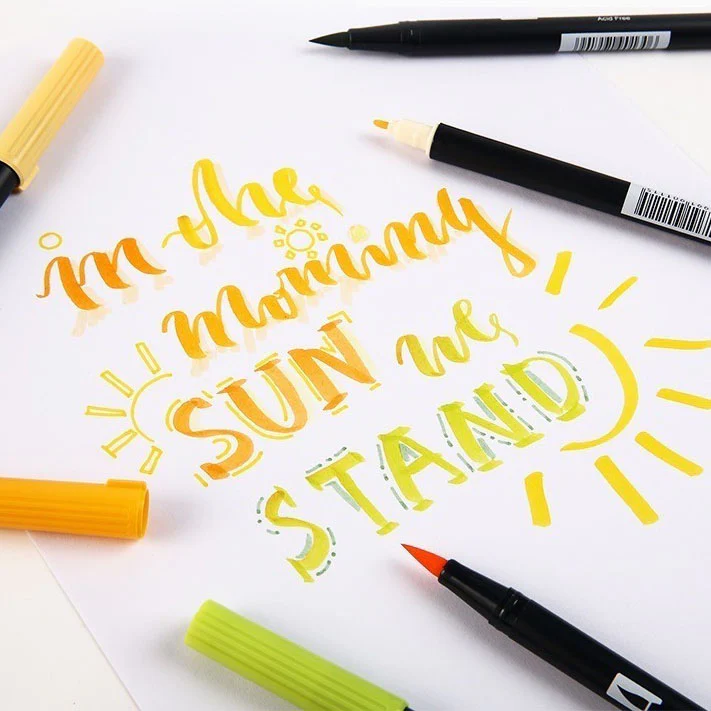 Acid Free
in the
morning
SUN we
STAND